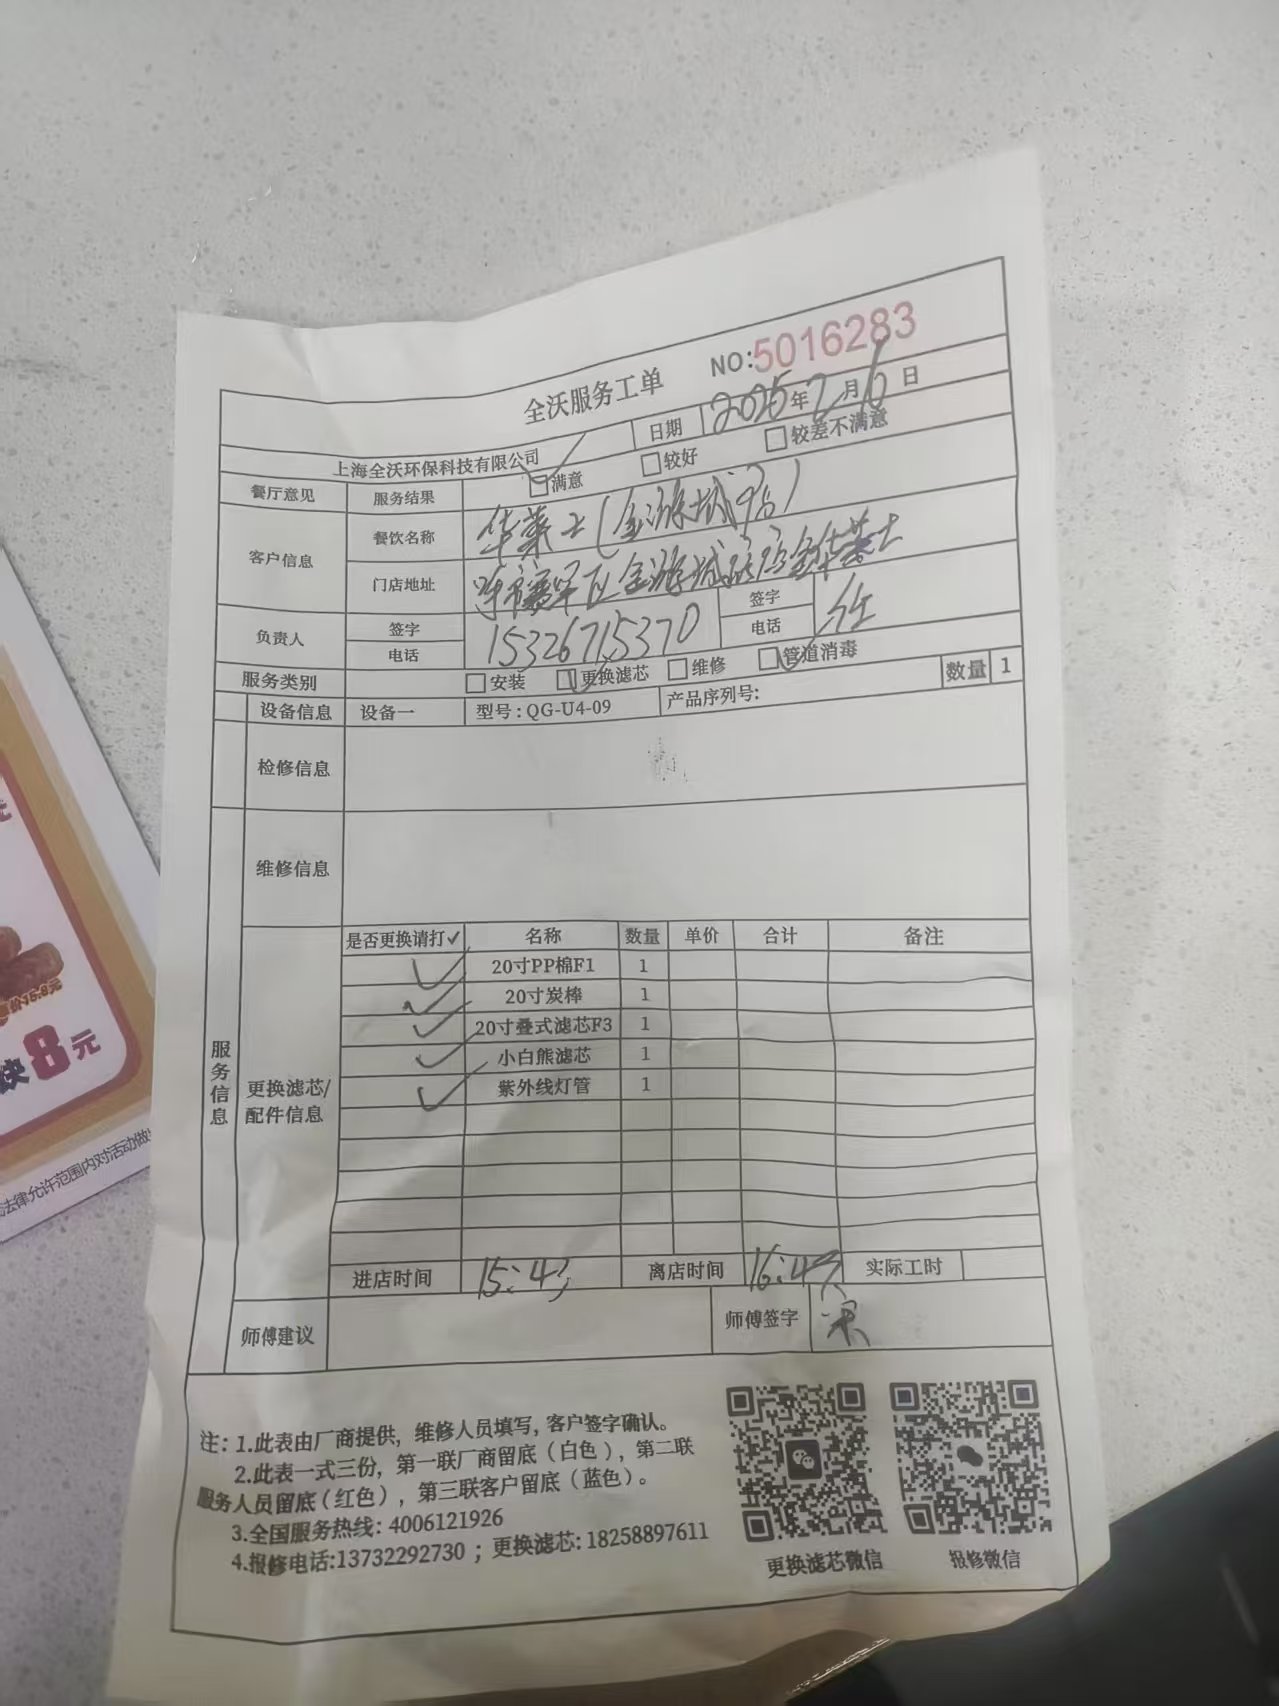 全沃服务工单
NO:5016283
上海全沃环保科技有限公司 日期 2025年2月6日
餐厅意见 服务结果 满意 较好 较差不满意
客户信息 餐饮名称 华莱士(金源城店)
门店地址
负责人 签字 签字
电话 15326715370 电话
服务类别 安装 更换滤芯 维修 管道消毒
设备信息 设备一 型号:QG-U4-09 产品序列号: 数量 1
检修信息
维修信息
服务信息
更换滤芯/
配件信息
是否更换请打✓ 名称 数量 单价 合计 备注
✓ 20寸PP棉F1 1
✓ 20寸炭棒 1
✓ 20寸叠式滤芯F3 1
✓ 小白熊滤芯 1
✓ 紫外线灯管 1
进店时间 15:43 离店时间 实际工时
师傅建议 师傅签字
注:1.此表由厂商提供,维修人员填写,客户签字确认。
2.此表一式三份,第一联厂商留底(白色),第二联
服务人员留底(红色),第三联客户留底(蓝色)。
3.全国服务热线:4006121926
4.报修电话:13732292730 ;更换滤芯:18258897611
更换滤芯微信 报修微信
快8元
法律允许范围内对活动做